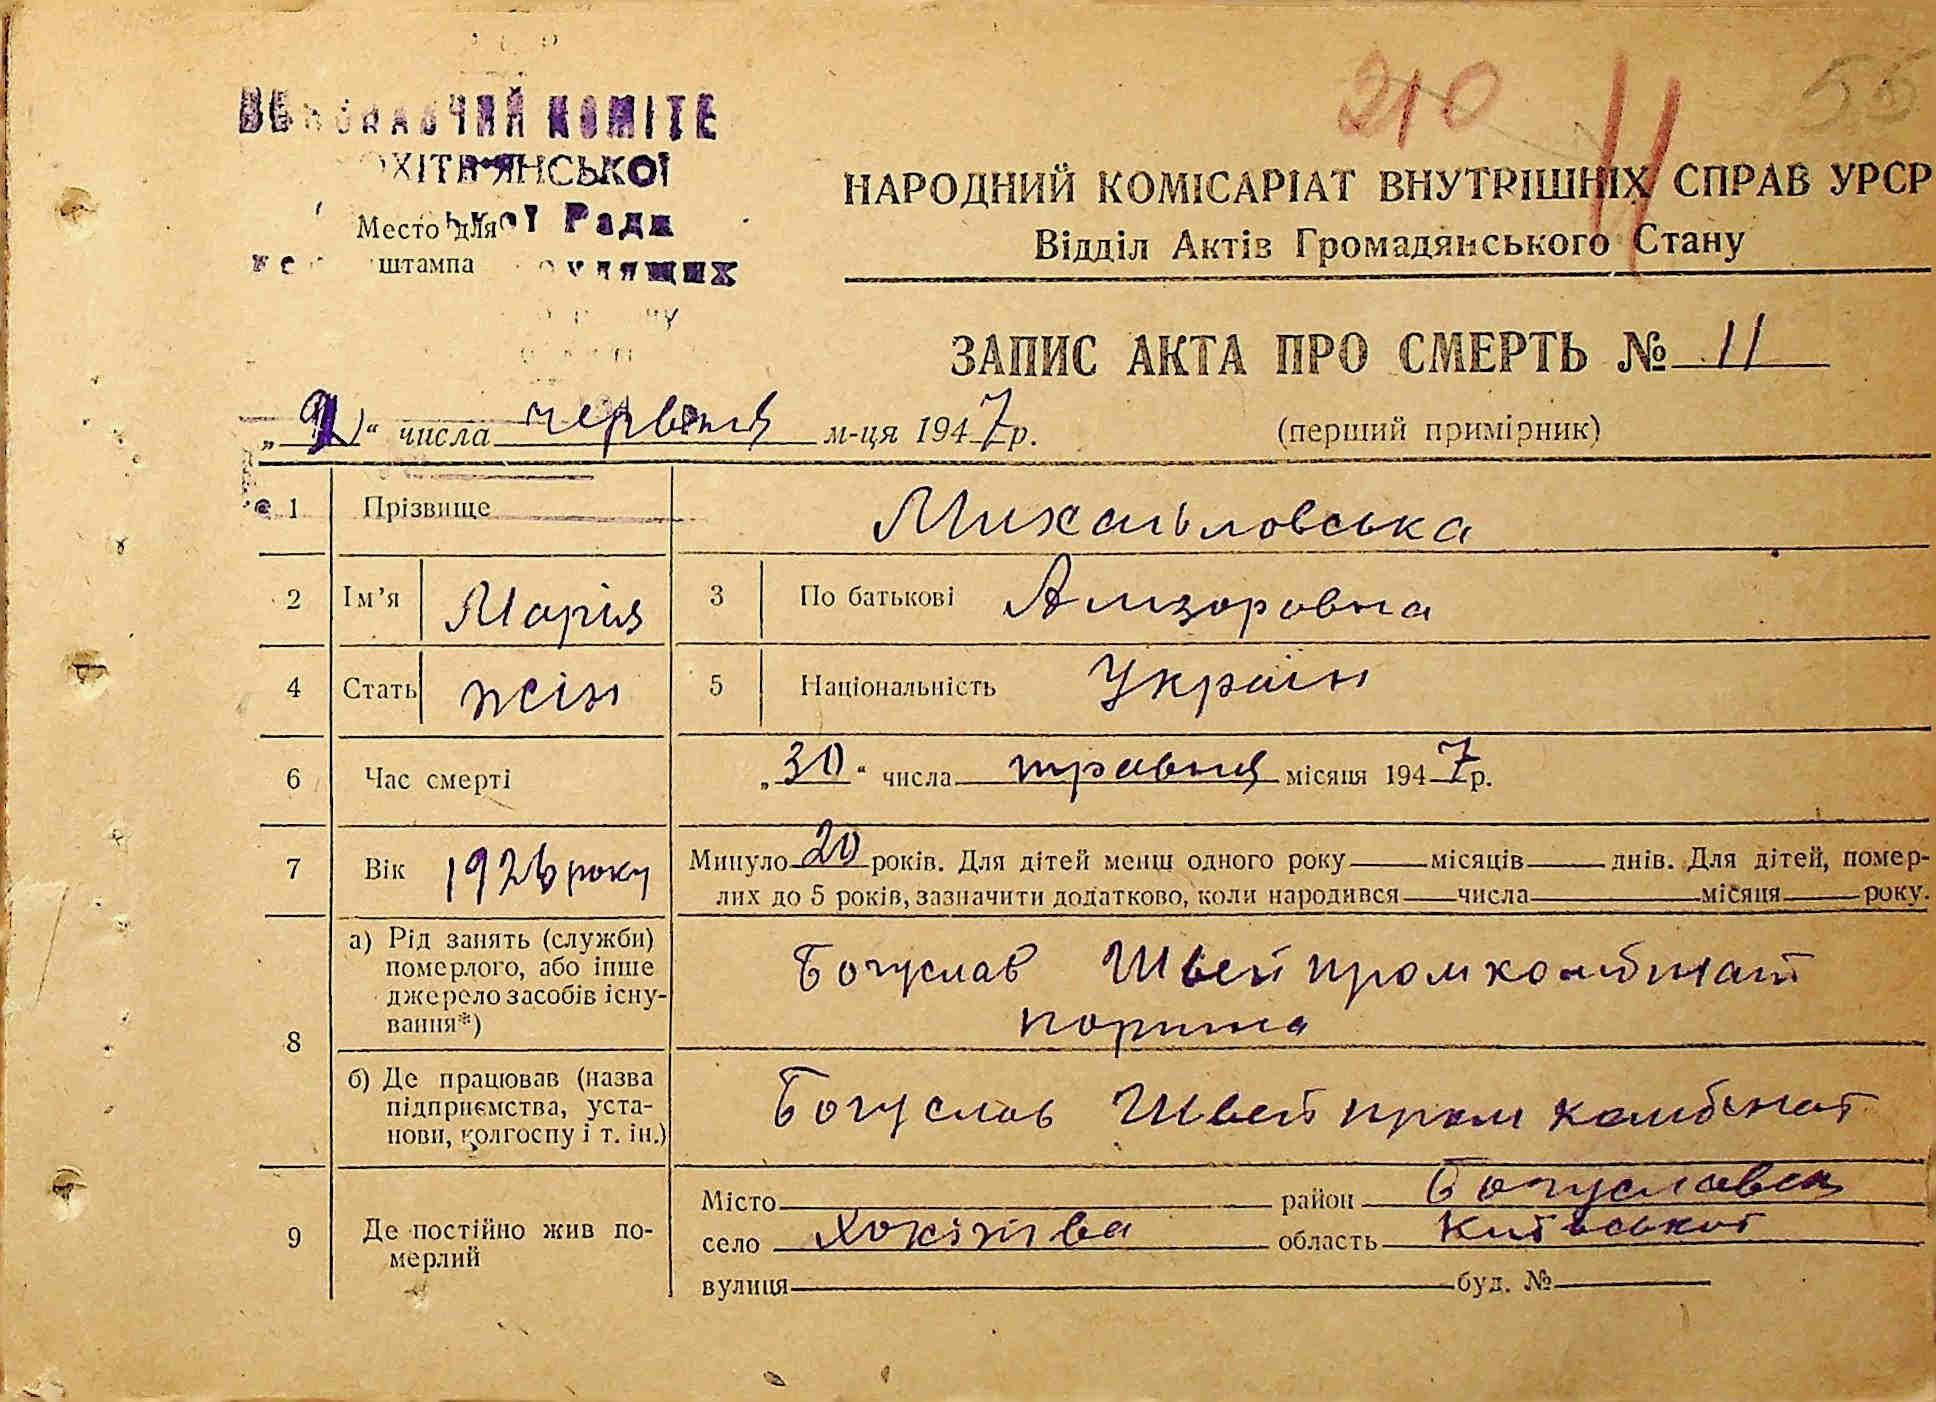 210 11 55
КОМІТЕ
ОХІТВЯНСЬКОЇ
Ради
Место для
штампа
НАРОДНИЙ КОМІСАРІАТ ВНУТРІШНІХ СПРАВ УРСР
Відділ Актів Громадянського Стану
ЗАПИС АКТА ПРО СМЕРТЬ № 11
„ “ числа червня м-ця 1947 р.
(перший примірник)
1 Прізвище Михальловська
2 Ім’я Марія 3 По батькові
4 Стать жін 5 Національність Україн
6 Час смерті „30“ числа травня місяця 1947 р.
7 Вік 1926 року Минуло 20 років. Для дітей менш одного року місяців днів. Для дітей, помер-
лих до 5 років, зазначити додатково, коли народився числа місяця року.
8 а) Рід занять (служби)
померлого, або інше
джерело засобів існу-
вання*)
Богуслав Швейпромкомбинат
б) Де працював (назва
підприємства, уста-
нови, колгоспу і т. ін.)
Богуслав Швейпромкомбинат
9 Де постійно жив по-
мерлий
Місто район Богуславск
село Хохітва область Київської
вулиця буд. №